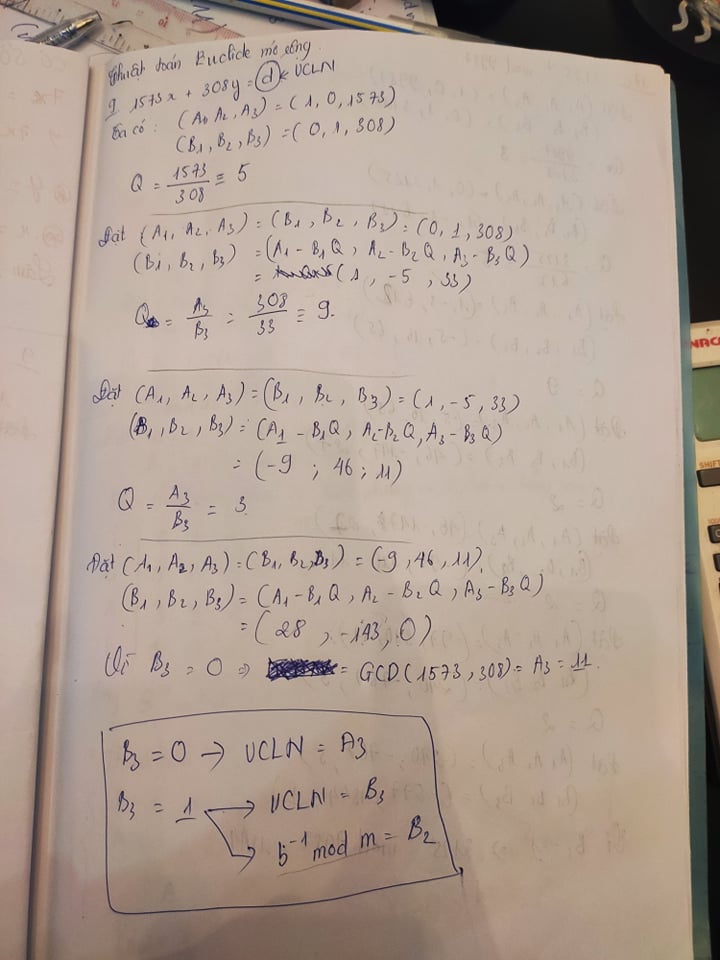 Thuật toán Euclide mở rộng.
VD 1573x + 308y = d ← ƯCLN
Ta có: (A1, A2, A3) = (1, 0, 1573)
(B1, B2, B3) = (0, 1, 308)
Q = 1573/308 ≡ 5
Đặt (A1, A2, A3) = (B1, B2, B3) = (0, 1, 308)
(B1, B2, B3) = (A1 - B1Q, A2 - B2Q, A3 - B3Q)
= (1, -5, 33)
Q = A3/B3 = 308/33 ≡ 9.
Đặt (A1, A2, A3) = (B1, B2, B3) = (1, -5, 33)
(B1, B2, B3) = (A1 - B1Q, A2 - B2Q, A3 - B3Q)
= (-9 ; 46 ; 11)
Q = A3/B3 = 3
Đặt (A1, A2, A3) = (B1, B2, B3) = (-9, 46, 11).
(B1, B2, B3) = (A1 - B1Q, A2 - B2Q, A3 - B3Q)
= (28, -143, 0)
Vì B3 = 0 ⇒ = GCD(1573, 308) = A3 = 11.
B3 = 0 → ƯCLN = A3
B3 = 1 → ƯCLN = B3
→ b⁻¹ mod m = B2
SHIFT